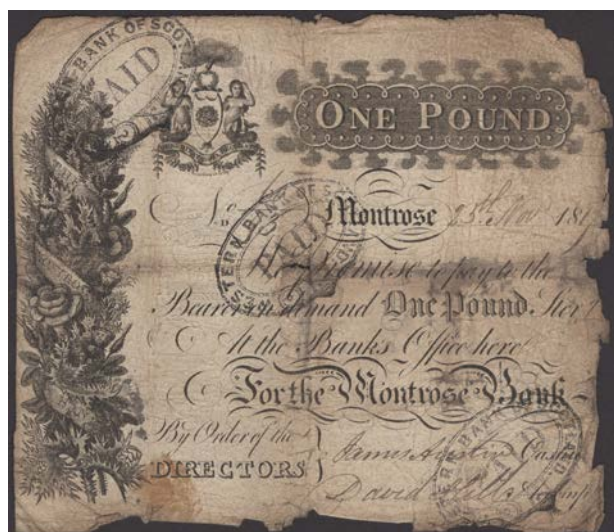 WESTERN BANK OF SCOTLAND
PAID
ONE POUND
No. Montrose 25th Nov 181
WESTERN BANK OF SCOTLAND
PAID
We Promise to pay to the
Bearer on demand One Pound Ster
At the Banks Office here
For the Montrose Bank
By Order of the
DIRECTORS
James Cashr
David Accompt
WESTERN BANK